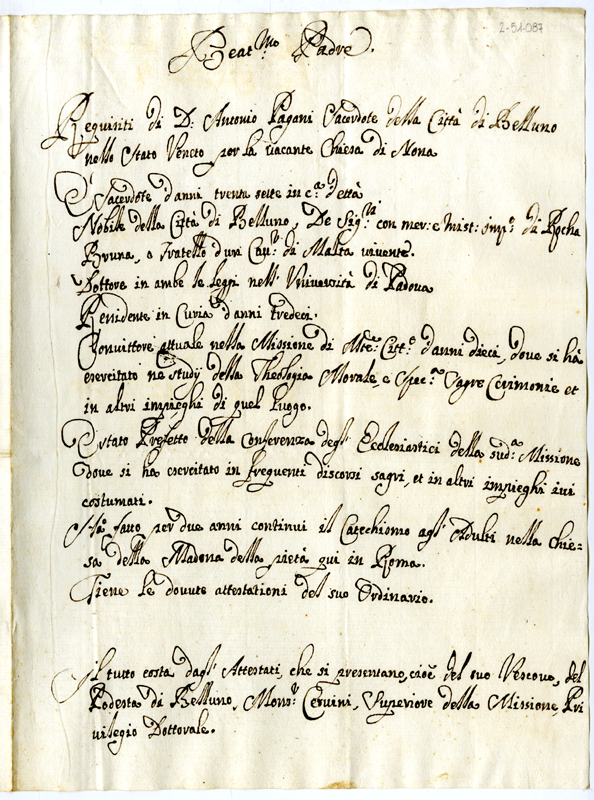 2-51-087
Beat.mo Padre.
Requisiti di D: Antonio Pagani Sacerdote della Città di Belluno
nello Stato Veneto per la vacante Chiesa di Nona
È Sacerdote d'anni trenta sette in c.a d'età
Nobile della Città di Belluno, De Sig.ri con mer: e mist: imp.o di Rocha
Bruna, e Fratello d'un Cav.r di Malta vivente.
Dottore in ambe le leggi nell'Università di Padova
Residente in Curia d'anni tredeci.
Convittore attuale nella Missione di Mte: Cit.o d'anni dieci, dove si hà
esercitato ne study della Theologia Morale, e Spec.a Sagre Cerimonie et
in altri impieghi di quel luogo.
È stato Prefetto della Conferenza degl'Ecclesiastici della sud.a Missione
dove si ha esercitato in frequenti discorsi sagri, et in altri impieghi ivi
costumati.
Hà fatto per due anni continui il Catechismo agl'Adulti nella chie=
sa della Madona della pietà qui in Roma.
Tiene le dovute attestationi del suo Ordinario.
Il tutto costa dagl'Attestati, che si presentano, cioè del suo Vescovo, del
Podestà di Belluno, Mons.r Cervini, Superiore della Missione, Pri
vilegio Dottorale.